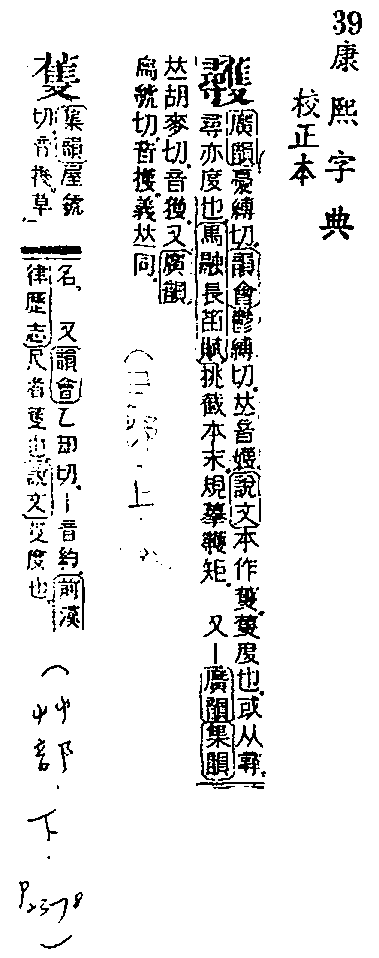 39
康熙字典
校正本
廣韻憂縛切韻會鬱縛切𠀤音嬳說文本作蒦蒦度也或从尋
尋亦度也馬融長笛賦挑截本末規摹彠矩 又一廣韻集韻
𠀤胡麥切音獲又廣韻
烏號切音擭義𠀤同
上
蒦
集韻屋號
切音擭草
名 又韻會乙却切音約前漢
律歷志尺者蒦也說文蒦度也
(艸部
下
P2378)